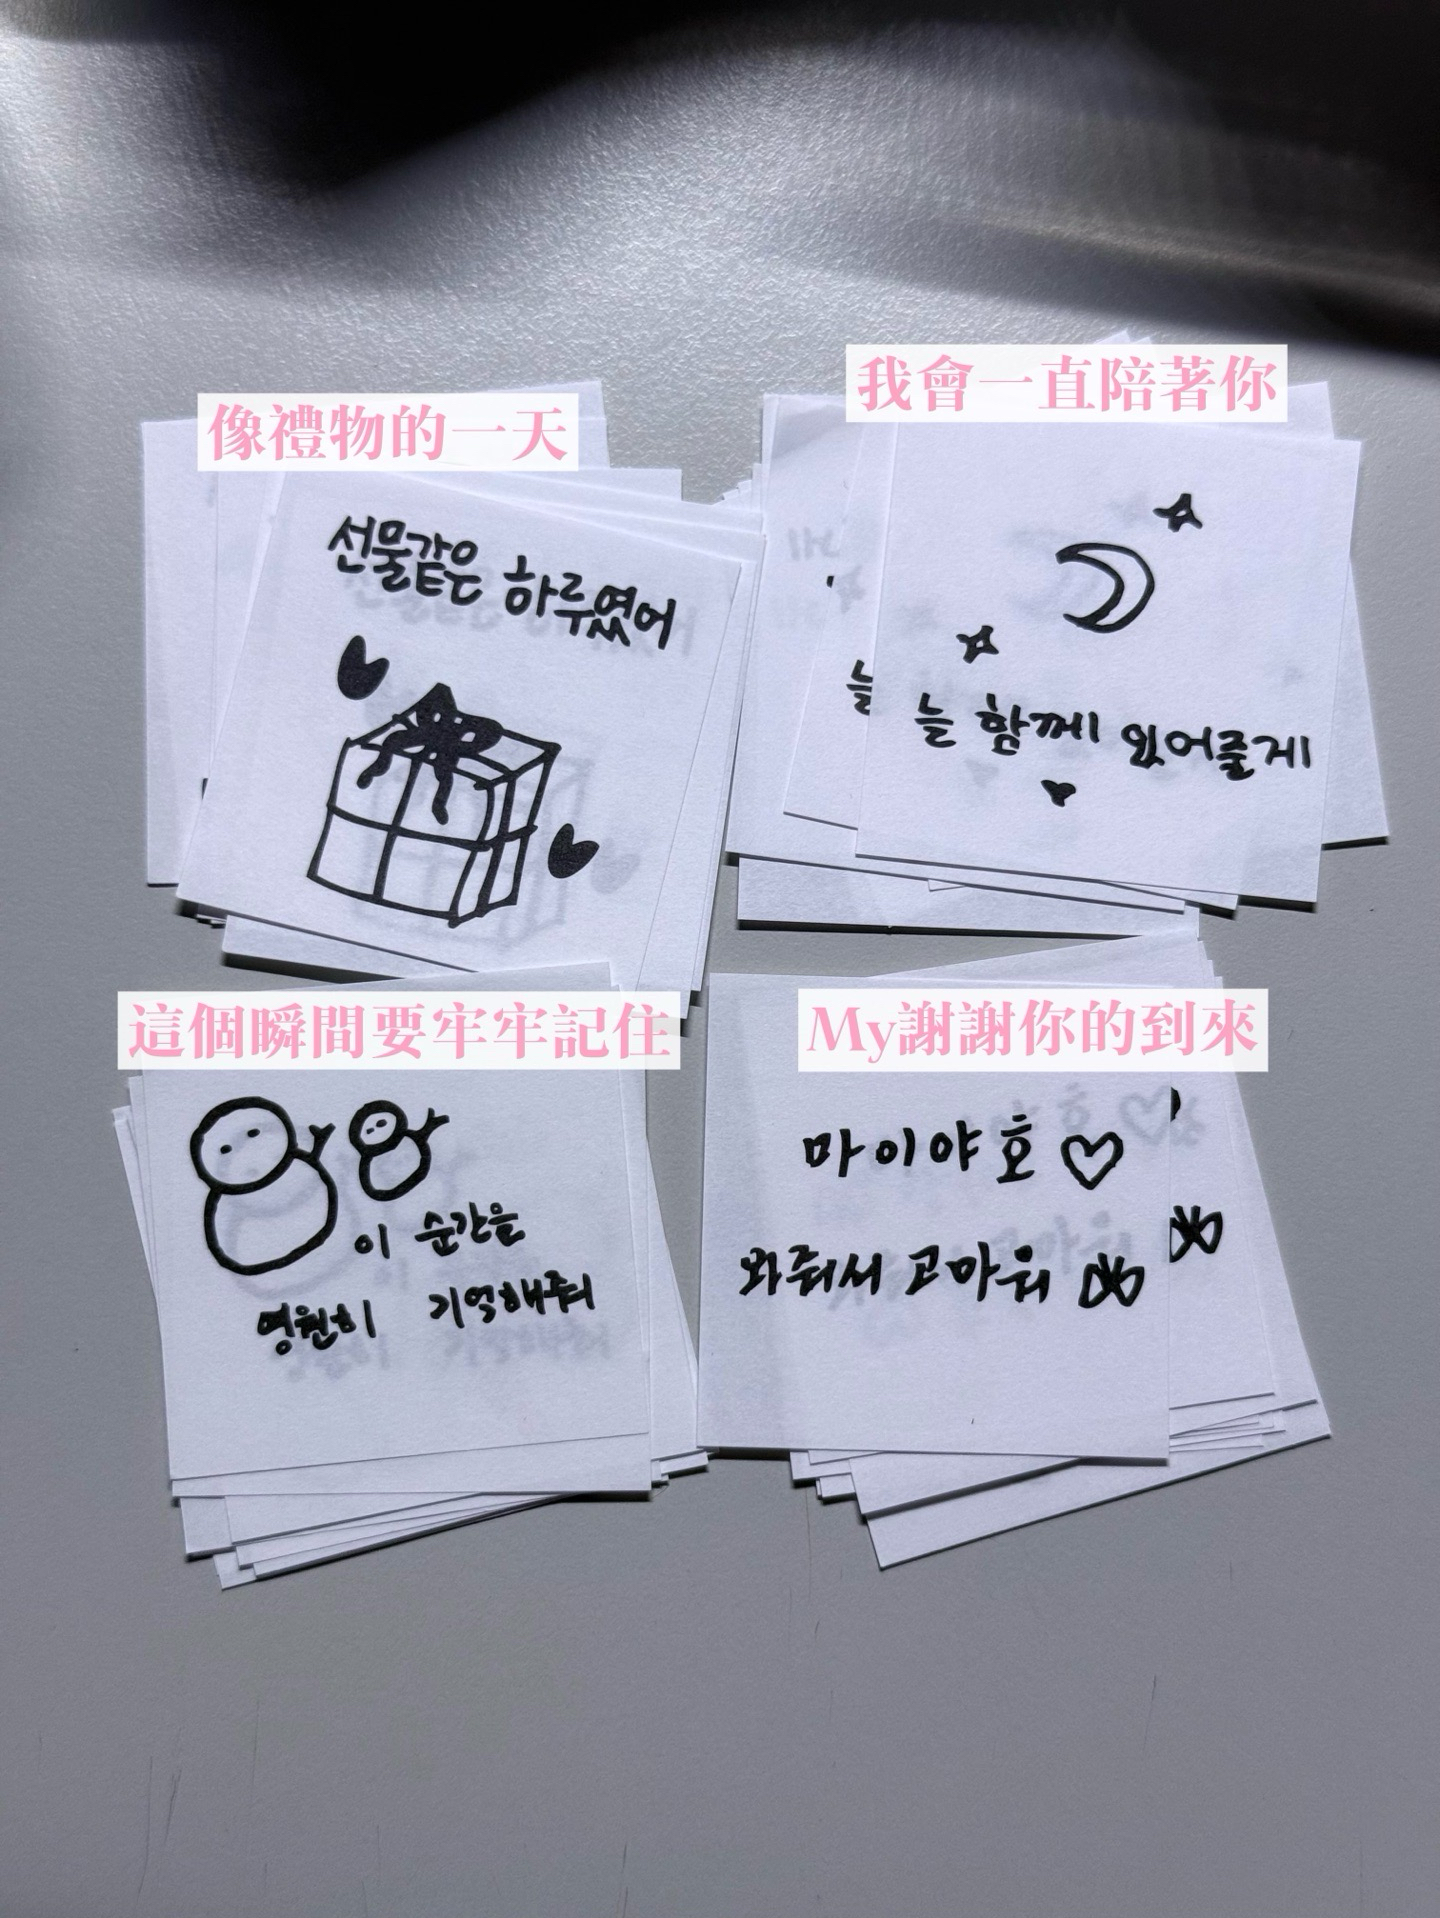 像禮物的一天
선물같은 하루였어
我會一直陪著你
늘
늘 함께 있어줄게
這個瞬間要牢牢記住
이 순간을
영원히 기억해줘
My謝謝你的到來
마이야호♡
와줘서 고마워